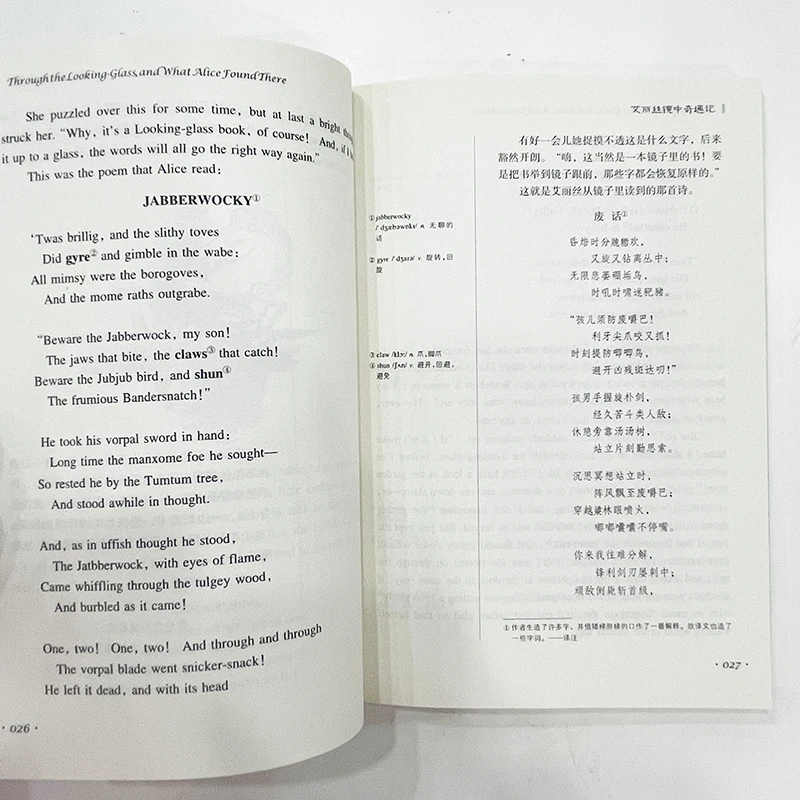 Through the Looking-Glass, and What Alice Found There
She puzzled over this for some time, but at last a bright
struck her. “Why, it's a Looking-glass book, of course! And, if I
it up to a glass, the words will all go the right way again.”
This was the poem that Alice read:
JABBERWOCKY①
'Twas brillig, and the slithy toves
Did gyre② and gimble in the wabe:
All mimsy were the borogoves,
And the mome raths outgrabe.
“Beware the Jabberwock, my son!
The jaws that bite, the claws③ that catch!
Beware the Jubjub bird, and shun④
The frumious Bandersnatch!”
He took his vorpal sword in hand:
Long time the manxome foe he sought—
So rested he by the Tumtum tree,
And stood awhile in thought.
And, as in uffish thought he stood,
The Jatbberwock, with eyes of flame,
Came whiffling through the tulgey wood,
And burbled as it came!
One, two! One, two! And through and through
The vorpal blade went snicker-snack!
He left it dead, and with its head
· 026 ·
① jabberwocky
n. 无聊的
话
② gyre /'dʒaiə/ v. 旋转,回
旋
③ claw /klɔ:/ n. 爪,脚爪
④ shun /ʃʌn/ v. 避开,回避,
避免
艾丽丝镜中奇遇记
有好一会儿她捉摸不透这是什么文字，后来
豁然开朗。“嗨，这当然是一本镜子里的书！要
是把书举到镜子跟前，那些字都会恢复原样的。”
这就是艾丽丝从镜子里读到的那首诗。
废话①
昏焙时分
又旋又钻离丛中；
无限悲萎 鸟，
时吼时啸迷肥豬。
“孩儿须防废嚼巴！
利牙尖爪咬又抓！
时刻提防唧唧鸟，
避开凶残斑达叨！”
孩男手握旋朴剑，
经久苦斗类人敌；
休憩旁靠汤汤树，
站立片刻勤思索。
沉思冥想站立时，
阵风飘至废嚼巴；
穿越 林眼喷火，
嘟嘟囔囔不停嘴。
你来我往难分解，
锋利剑刃屡刺中；
顽敌倒毙斩首级，
① 作者生造了许多字，并借矮梯胖梯的口作了一番解释。故译文也造了
一些字词。——译注
· 027 ·